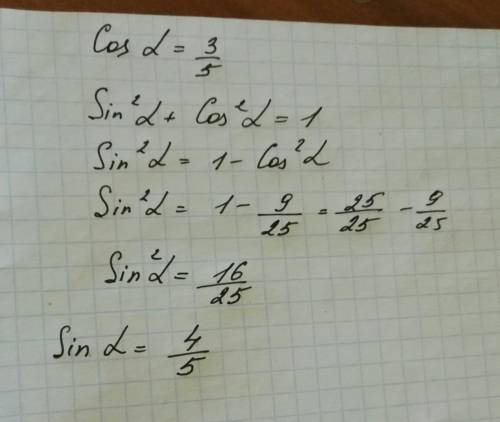 Cos α = 3/5
Sin²α + Cos²α = 1
Sin²α = 1 - Cos²α
Sin²α = 1 - 9/25 = 25/25 - 9/25
Sin²α = 16/25
Sin α = 4/5